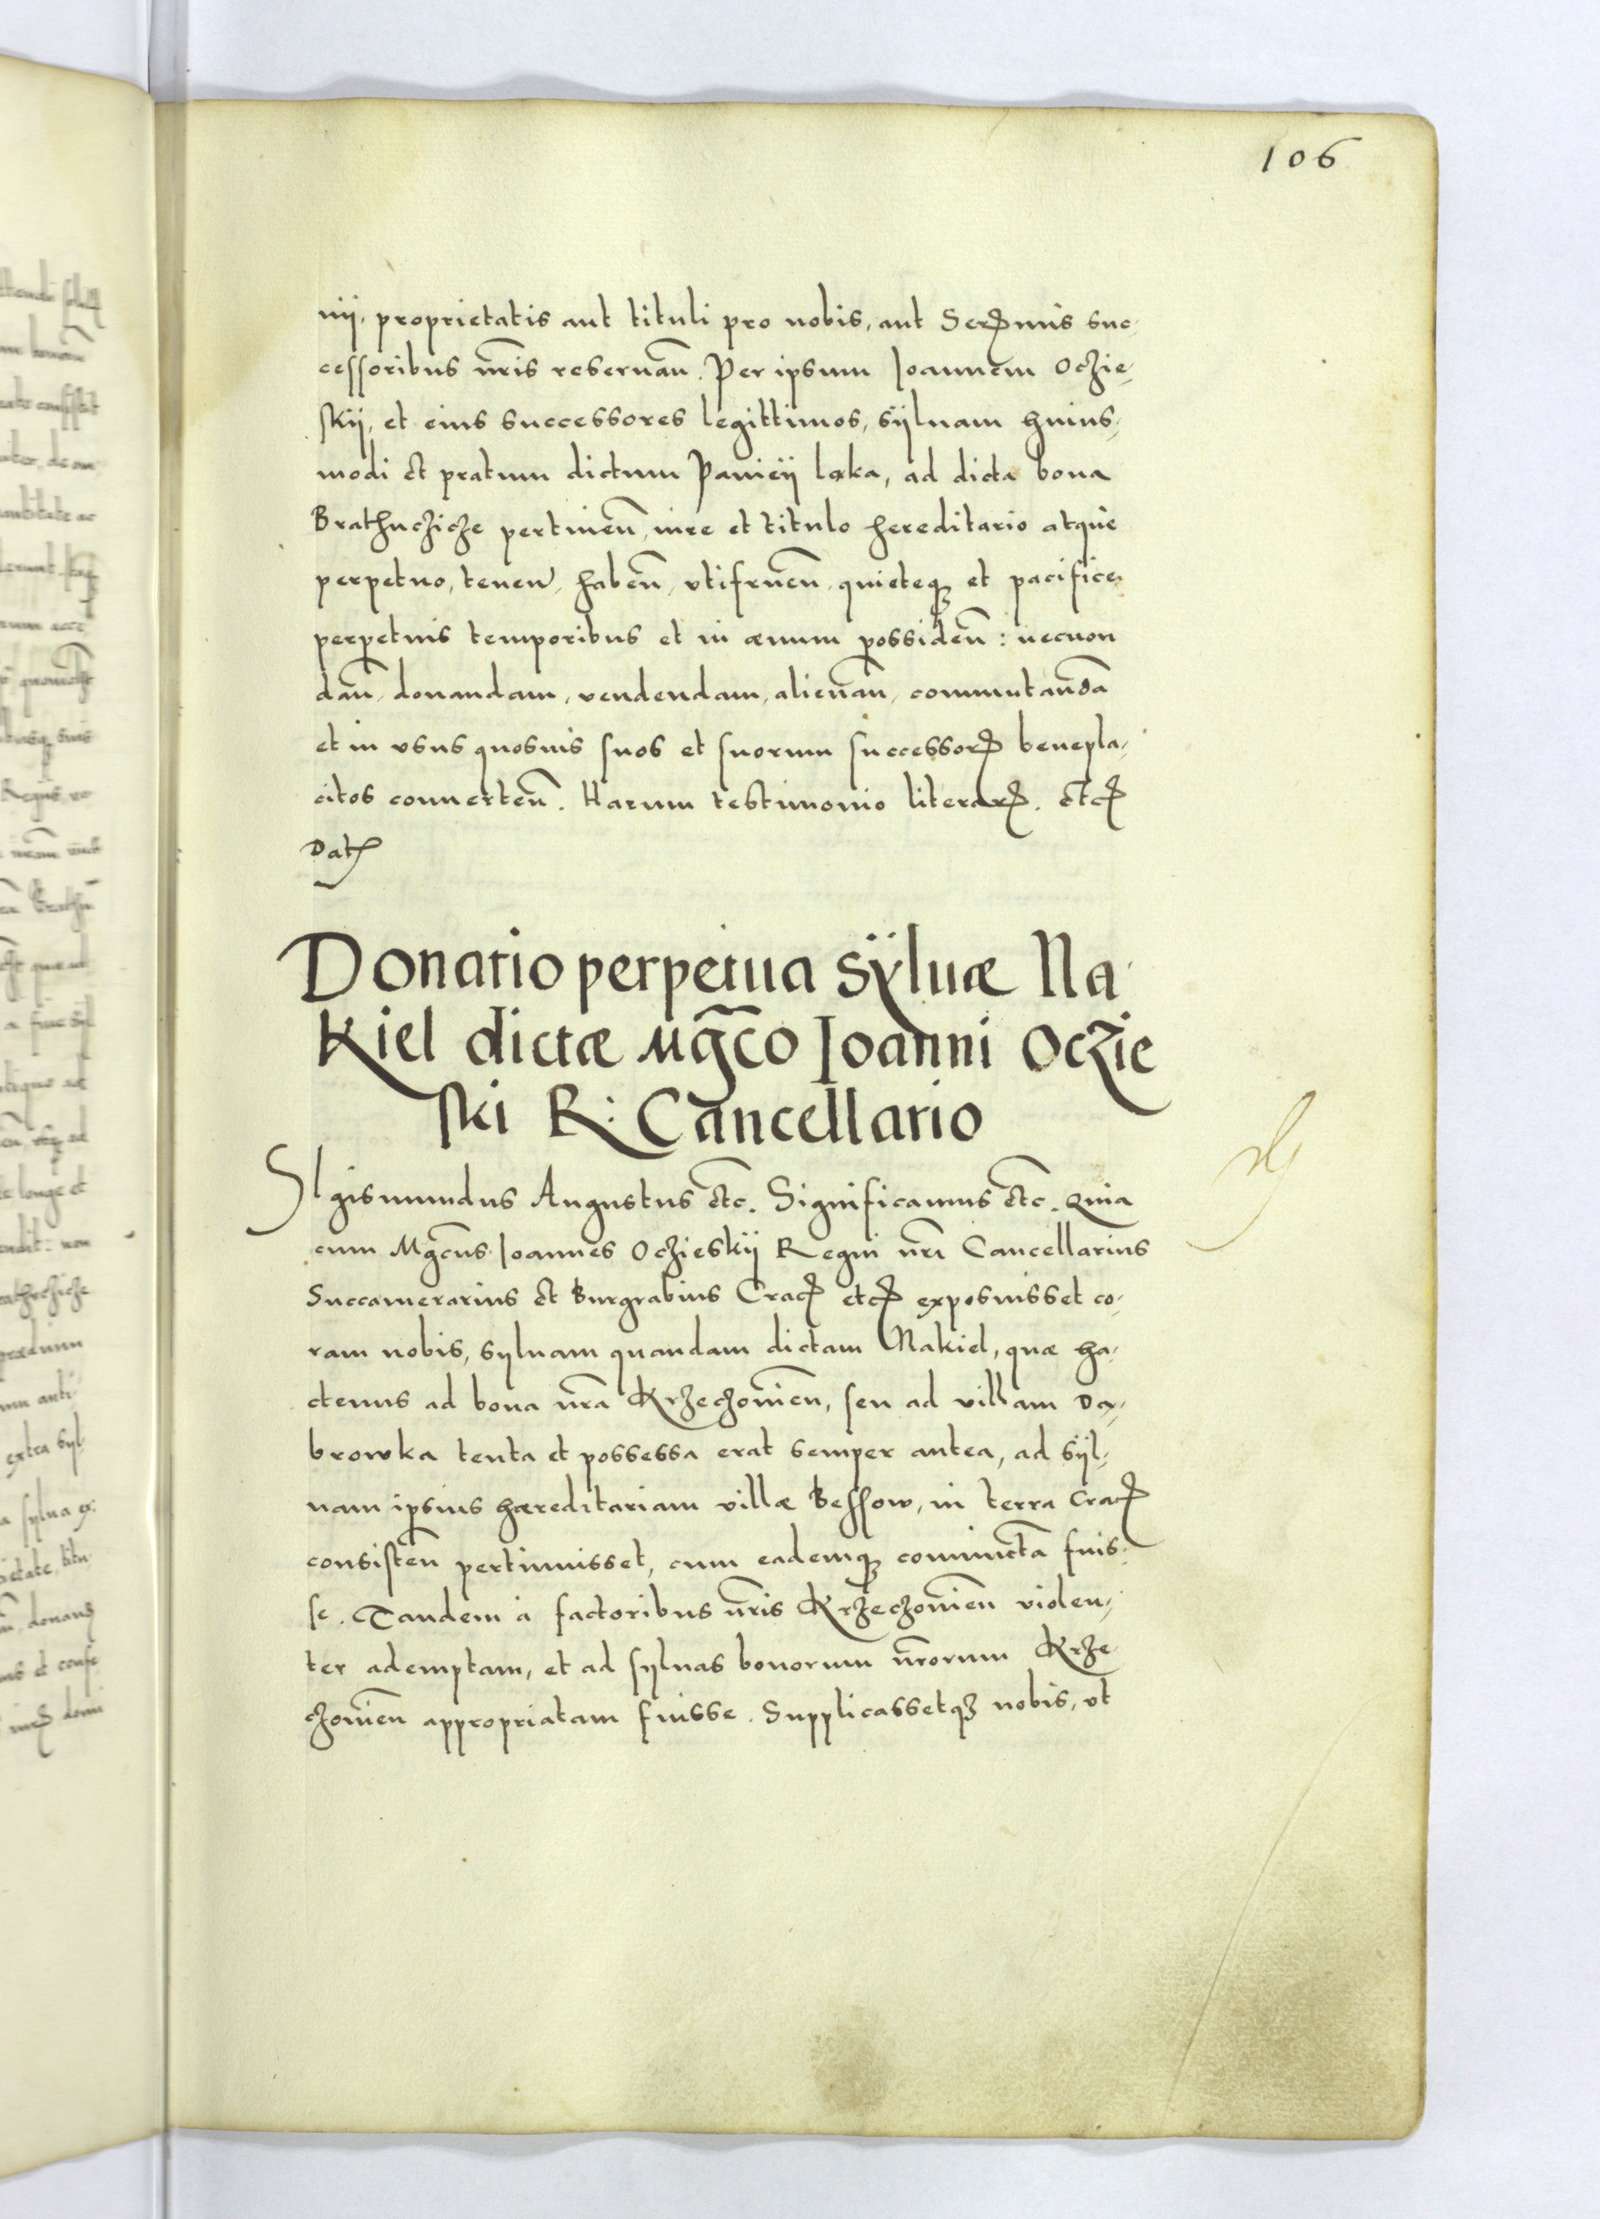 106
nij, proprietatis aut tituli pro nobis, aut Serenmis suc-
cessoribus nr̃is reseruan̄. Per ipsum Ioannem Oczie-
skij, et eius successores legittimos, sÿluam huius-
modi et pratum dictum Panieÿ laka, ad dicta bona
Brathuczicze pertinen̄, iure et titulo hereditario atque
perpetuo, tenen̄, haben̄, vtifruen̄, quieteqꝫ et pacifice
perpetuis temporibus et in æuum possiden̄: necnon
dan̄, donandam, vendendam, alienan̄, commutanda
et in vsus quosuis suos et suorum successorꝝ benepla-
citos conuerten̄. Harum testimonio literarꝝ. etc̃
Dat̃
Donatio perpetua sÿluæ Na-
kiel dictæ Mgc̃o Ioanni Oczie
ski R: Cancellario
SIgismundus Augustus etc. Significamus etc. Quia
cum Mgc̃us Ioannes Oczieskij Regni nr̃i Cancellarius
Succamerarius et Burgrabius Crac̃ etc̃ exposuisset co-
ram nobis, syluam quandam dictam Nakiel, quæ ha-
ctenus ad bona nr̃a Krzeczouien̄, seu ad villam Da-
browka tenta et possessa erat semper antea, ad sÿl-
uam ipsius hæreditariam villæ Bessow, in terra Crac̃
consisten̄ pertinuisset, cum eademqꝫ coniuncta fuis-
se. Tandem a factoribus nr̃is Krzeczouien̄ violen-
ter ademptam, et ad syluas bonorum nr̃orum Krze-
czouien̄ appropriatam fuisse. Supplicassetqꝫ nobis, vt